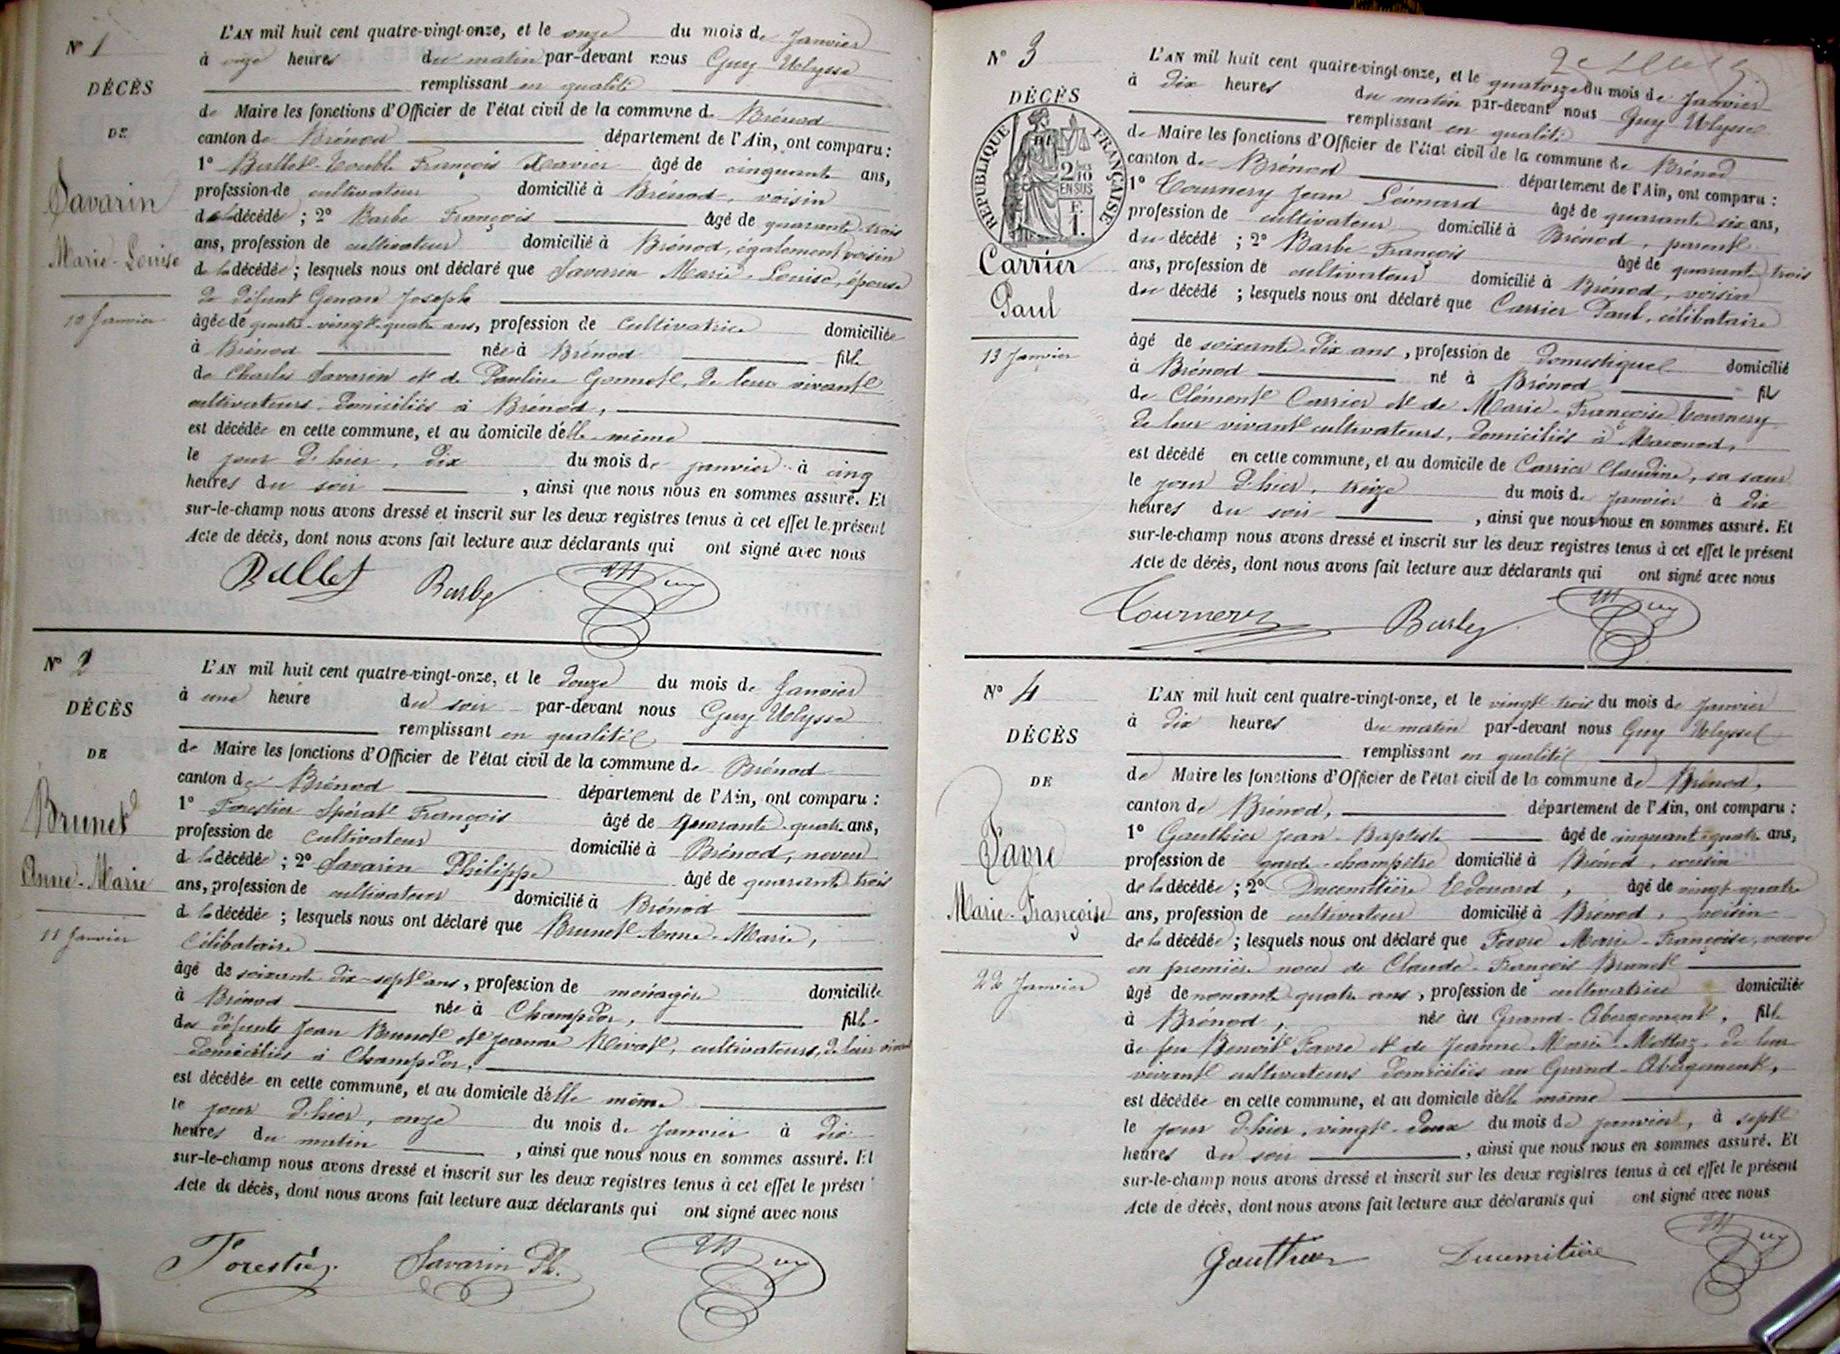 N° 1
DÉCÈS
DE
Savarin
Marie-Louise
10 Janvier
L'AN mil huit cent quatre-vingt-onze, et le onze du mois de Janvier
à onze heures du matin par-devant nous Guy Ulysse
remplissant en qualité
de Maire les fonctions d'Officier de l'état civil de la commune de Brénod
canton de Brénod département de l'Ain, ont comparu :
1° Ballet François Xavier âgé de cinquante ans,
profession de cultivateur domicilié à Brénod, voisin
de la décédée ; 2° Barbe François âgé de quarante trois
ans, profession de cultivateur domicilié à Brénod, également voisin
de la décédée ; lesquels nous ont déclaré que Savarin Marie-Louise, épouse
de défunt Joseph
âgée de quatre-vingt-quatre ans, profession de cultivatrice domiciliée
à Brénod née à Brénod fille
de Charles Savarin et de Pauline de leur vivant
cultivateurs domiciliés à Brénod,
est décédée en cette commune, et au domicile d'elle-même
le jour d'hier, dix du mois de janvier à cinq
heures du soir , ainsi que nous nous en sommes assuré. Et
sur-le-champ nous avons dressé et inscrit sur les deux registres tenus à cet effet le présent
Acte de décès, dont nous avons fait lecture aux déclarants qui ont signé avec nous
Ballet Barbe Guy
N° 2
DÉCÈS
DE
Brunet
Anne-Marie
11 Janvier
L'AN mil huit cent quatre-vingt-onze, et le douze du mois de Janvier
à une heure du soir par-devant nous Guy Ulysse
remplissant en qualité
de Maire les fonctions d'Officier de l'état civil de la commune de Brénod
canton de Brénod département de l'Ain, ont comparu :
1° Forestier Spérat François âgé de quarante-quatre ans,
profession de cultivateur domicilié à Brénod, neveu
de la décédée ; 2° Savarin Philippe âgé de quarante trois
ans, profession de cultivateur domicilié à Brénod
de la décédée ; lesquels nous ont déclaré que Brunet Anne-Marie,
Célibataire
âgé de soixante-dix-sept ans, profession de ménagère domiciliée
à Brénod née à Champdor, fille
des défunts Jean Brunet et Jeanne Nivat, cultivateurs, de leur vivant
domiciliés à Champdor,
est décédée en cette commune, et au domicile d'elle même
le jour d'hier, onze du mois de Janvier à dix
heures du matin , ainsi que nous nous en sommes assuré. Et
sur-le-champ nous avons dressé et inscrit sur les deux registres tenus à cet effet le présent
Acte de décès, dont nous avons fait lecture aux déclarants qui ont signé avec nous
Forestier Savarin Ph. Guy
N° 3
DÉCÈS
RÉPUBLIQUE FRANÇAISE
2/10 EN SUS
F. 1.
Carrier
Paul
13 Janvier
L'AN mil huit cent quatre-vingt-onze, et le quatorze du mois de Janvier
à dix heures du matin par-devant nous Guy Ulysse
remplissant en qualité
de Maire les fonctions d'Officier de l'état civil de la commune de Brénod
canton de Brénod département de l'Ain, ont comparu :
1° Tournery Jean Léonard âgé de quarante six ans,
profession de cultivateur domicilié à Brénod, parent
du décédé ; 2° Barbe François âgé de quarante trois
ans, profession de cultivateur domicilié à Brénod, voisin
du décédé ; lesquels nous ont déclaré que Carrier Paul, célibataire
âgé de soixante-dix ans, profession de domestique domicilié
à Brénod né à Brénod fils
de Clément Carrier et de Marie-Françoise Tournery
de leur vivant cultivateurs, domiciliés à Maconod,
est décédé en cette commune, et au domicile de Carrier Claudine, sa sœur
le jour d'hier, treize du mois de Janvier à dix
heures du soir , ainsi que nous nous en sommes assuré. Et
sur-le-champ nous avons dressé et inscrit sur les deux registres tenus à cet effet le présent
Acte de décès, dont nous avons fait lecture aux déclarants qui ont signé avec nous
Tournery Barbe Guy
N° 4
DÉCÈS
DE
Favre
Marie-Françoise
22 Janvier
L'AN mil huit cent quatre-vingt-onze, et le vingt-trois du mois de Janvier
à dix heures du matin par-devant nous Guy Ulysse
remplissant en qualité
de Maire les fonctions d'Officier de l'état civil de la commune de Brénod,
canton de Brénod, département de l'Ain, ont comparu :
1° Gauthier Jean-Baptiste âgé de cinquante-quatre ans,
profession de garde-champêtre domicilié à Brénod, voisin
de la décédée ; 2° Ducemitière Edouard, âgé de vingt-quatre
ans, profession de cultivateur domicilié à Brénod, voisin
de la décédée ; lesquels nous ont déclaré que Favre Marie-Françoise, veuve
en première noce de Claude-François Brunet
âgé de nonante quatre ans, profession de cultivatrice domiciliée
à Brénod, née au Grand-Abergement, fille
de feu Benoit Favre et de Jeanne Marie Mottaz de leur
vivant cultivateurs domiciliés au Grand-Abergement,
est décédée en cette commune, et au domicile d'elle même
le jour d'hier, vingt-deux du mois de janvier, à sept
heures du soir , ainsi que nous nous en sommes assuré. Et
sur-le-champ nous avons dressé et inscrit sur les deux registres tenus à cet effet le présent
Acte de décès, dont nous avons fait lecture aux déclarants qui ont signé avec nous
Gauthier Ducemitière Guy